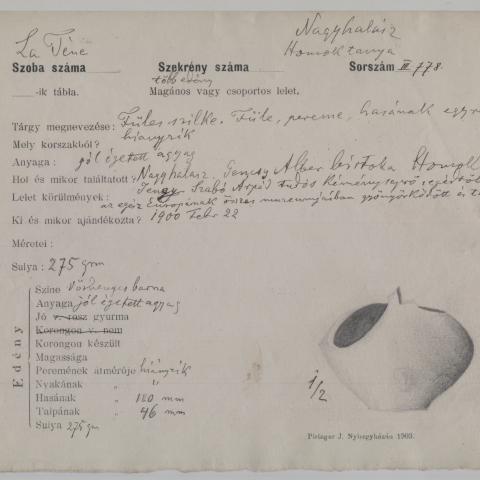 La Téne
Nagyhalász
Homoktanya
Szoba száma
Szekrény száma
Sorszám III 778.
több edény
-ik tábla.
Magános vagy csoportos lelet.
Tárgy megnevezése: Füles szilke. Füle, pereme, hasának egyr
Mely korszakból? hiányzik
Anyaga: jól égetett agyag
Hol és mikor találtatott? Nagyhalász. Jenesy Alber birtoka Homok
Lelet körülmények: Szabó Árpád tudós kéményseprő segédtől
az egész Európának összes muzeumjaiban gyönyörködött és t
Ki és mikor ajándékozta? 1900 Febr 22
Méretei:
Sulya: 275 grm
Edény
Szine Vöröhenyes barna
Anyaga jól égetett agyag
Jó v. rosz gyurma
Korongon v. nem
Korongon készült
Magassága
Peremének átmérője hiányzik
Nyakának " "
Hasának " 110 mm
Talpának " 46 mm
Sulya 275 gm
1/2
Piringer J. Nyiregyházán 1903.